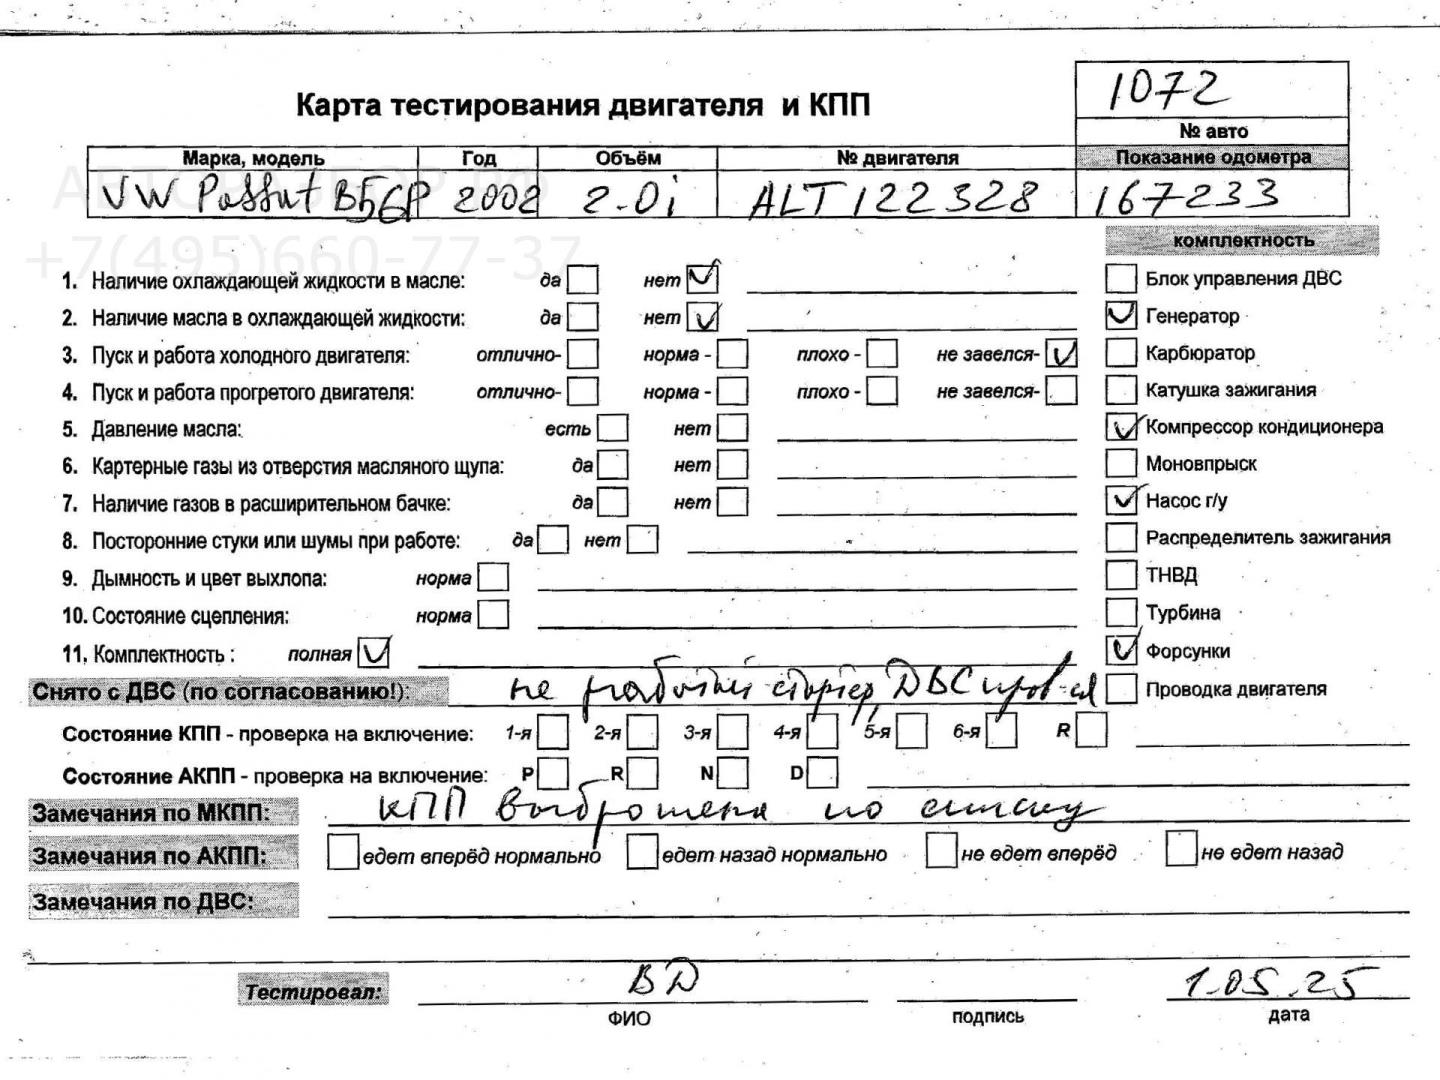 1072
Карта тестирования двигателя и КПП
№ авто
Марка, модель Год Объём № двигателя Показание одометра
АВТОРАЗБОР.РФ
VW Passat B5GP 2002 2.0i ALT 122328 167233
+7(495)660-77-37
комплектность
1. Наличие охлаждающей жидкости в масле: да нет Блок управления ДВС
2. Наличие масла в охлаждающей жидкости: да нет Генератор
3. Пуск и работа холодного двигателя: отлично- норма - плохо - не завелся- Карбюратор
4. Пуск и работа прогретого двигателя: отлично- норма - плохо - не завелся- Катушка зажигания
5. Давление масла: есть нет Компрессор кондиционера
6. Картерные газы из отверстия масляного щупа: да нет Моновпрыск
7. Наличие газов в расширительном бачке: да нет Насос г/у
8. Посторонние стуки или шумы при работе: да нет Распределитель зажигания
9. Дымность и цвет выхлопа: норма ТНВД
10. Состояние сцепления: норма Турбина
11. Комплектность : полная Форсунки
Снято с ДВС (по согласованию!): не рабочий стартер, ДВС пров-ся Проводка двигателя
Состояние КПП - проверка на включение: 1-я 2-я 3-я 4-я 5-я 6-я R
Состояние АКПП - проверка на включение: P R N D
Замечания по МКПП: КПП выброшена по списку
Замечания по АКПП: едет вперёд нормально едет назад нормально не едет вперёд не едет назад
Замечания по ДВС:
Тестировал: ВД 1.05.25
ФИО подпись дата